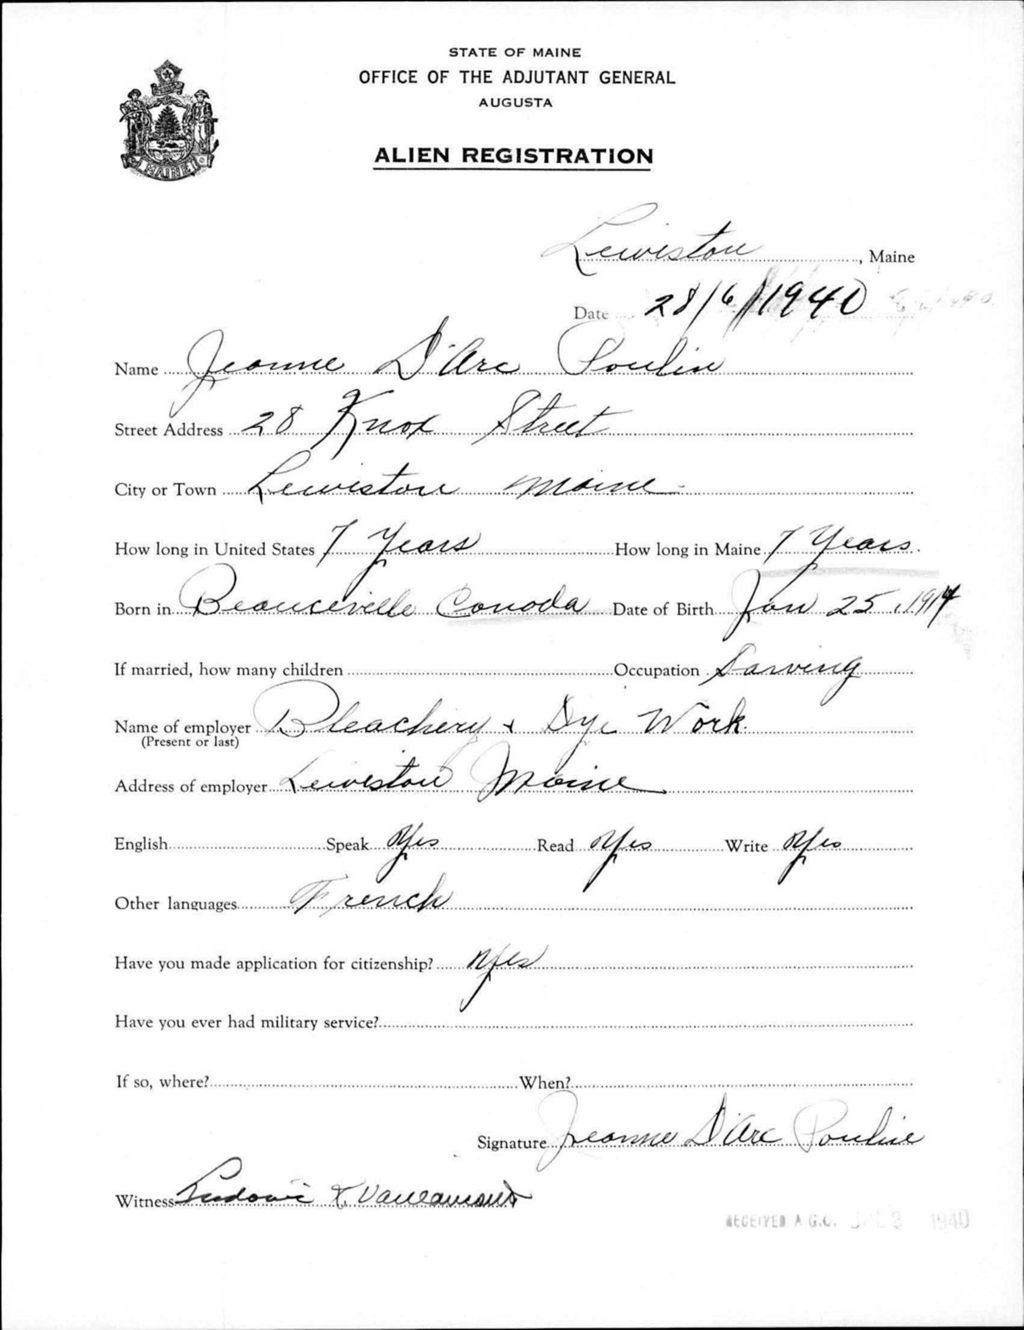 STATE OF MAINE
OFFICE OF THE ADJUTANT GENERAL
AUGUSTA
MAINE
ALIEN REGISTRATION
Lewiston, Maine
Date 28/6/1940
Name Jeanne D'Arc Poulin
Street Address 28 Knox Street
City or Town Lewiston Maine
How long in United States 7 Years How long in Maine 7 Years.
Born in Beauceville Canada Date of Birth Jan 25, 1914
If married, how many children Occupation
Name of employer Bleachery & Dye Work.
(Present or last)
Address of employer Lewiston Maine
English Speak Yes Read Yes Write Yes
Other languages French
Have you made application for citizenship? Yes
Have you ever had military service?
If so, where? When?
Signature Jeanne D'Arc Poulin
Witness
RECEIVED A.G.O. JUL 2 1940